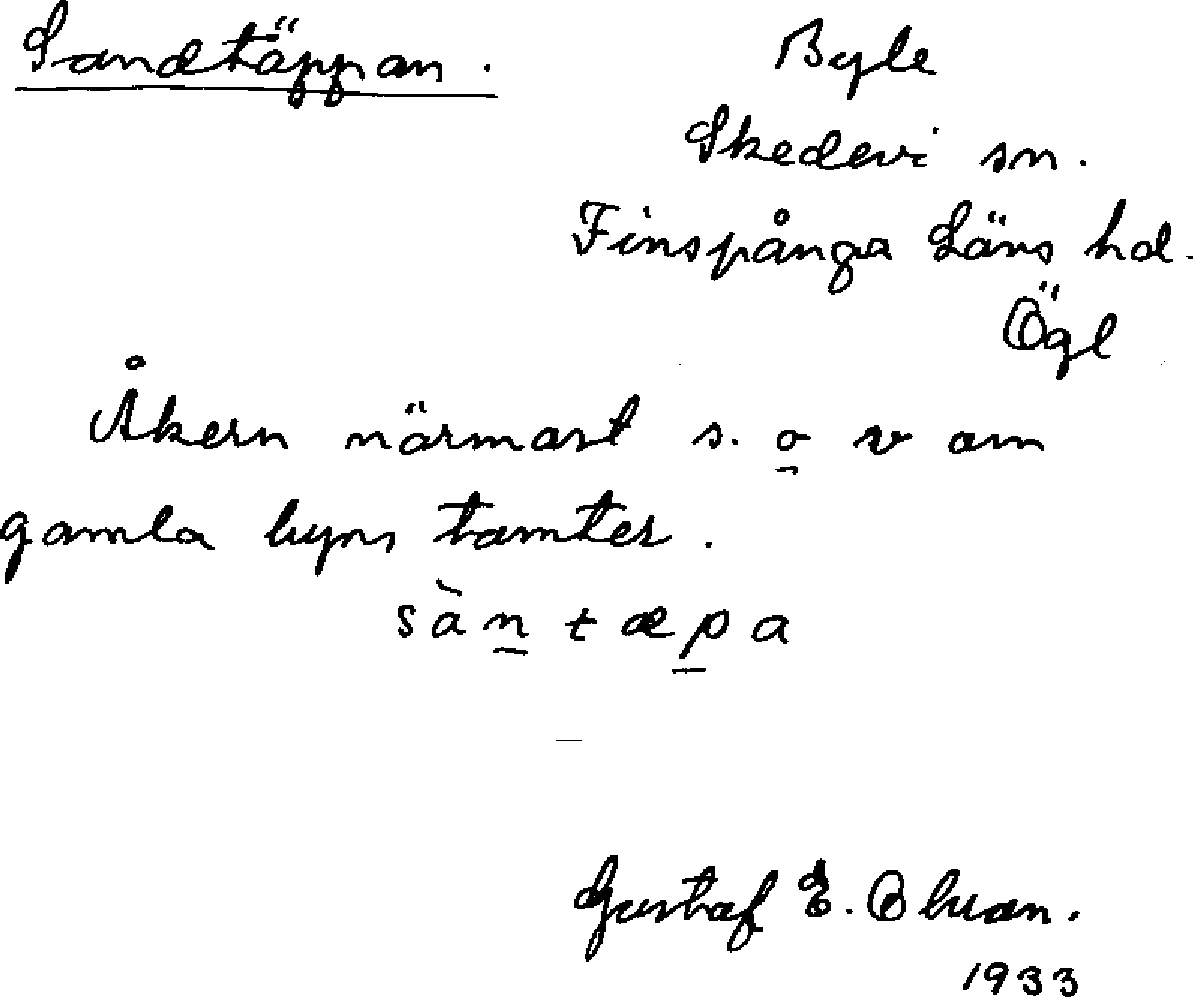 Sandtäppan.
Byle
Skedevi sn.
Finspånga Läns hd.
Ögl
Åkern närmast s. o v om
gamla byns tomter.
sàn tæpa
Gustaf E.
1933